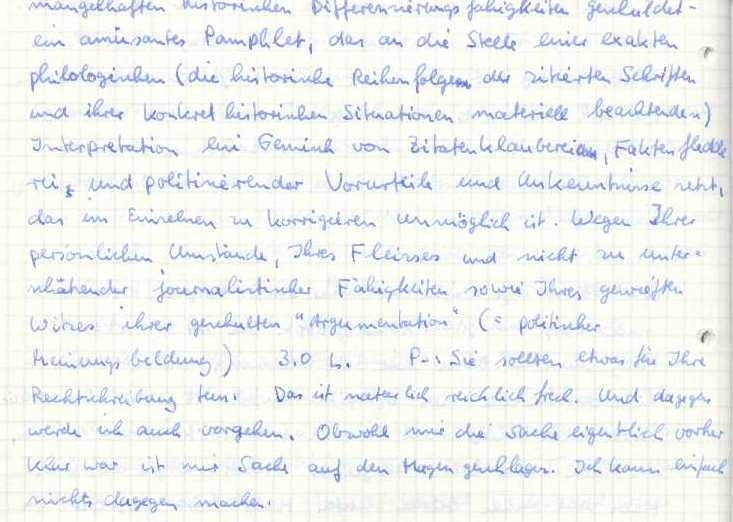 mangelhaften historischen Differenzierungsfähigkeiten geschuldet -
ein amüsantes Pamphlet, das an die Stelle einer exakten
philologischen (die historische Reihenfolge der zitierten Schriften
und ihrer konkret historischen Situationen materiell beachtenden)
Interpretation ein Gemisch von Zitatenklauberei, Faktenfledde
rei, und politisierender Vorurteile und Unkenntnisse setzt,
das im Einzelnen zu korrigieren unmöglich ist. Wegen Ihrer
persönlichen Umstände, Ihres Fleisses und nicht zu unter=
schätzender journalistischer Fähigkeiten sowie Ihres gewieften
Witzes ihrer geschulten "Argumentation" (= politischer
Meinungsbildung) 3.0 P-: Sie sollten etwas für Ihre
Rechtschreibung tun. Das ist natürlich reichlich frech. Und dagegen
werde ich auch vorgehen. Obwohl mir die Sache eigentlich vorher
klar war ist mir Sache auf den Magen geschlagen. Ich kann einfach
nichts dagegen machen.